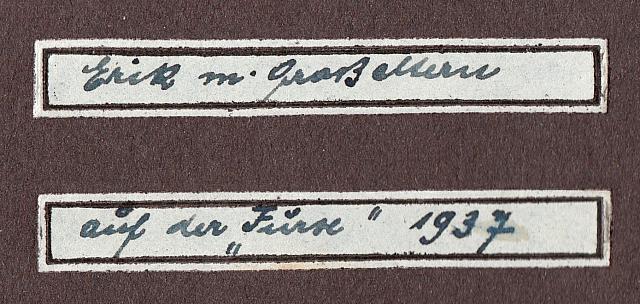 Erik m. Großeltern
auf der „Fürse" 1937